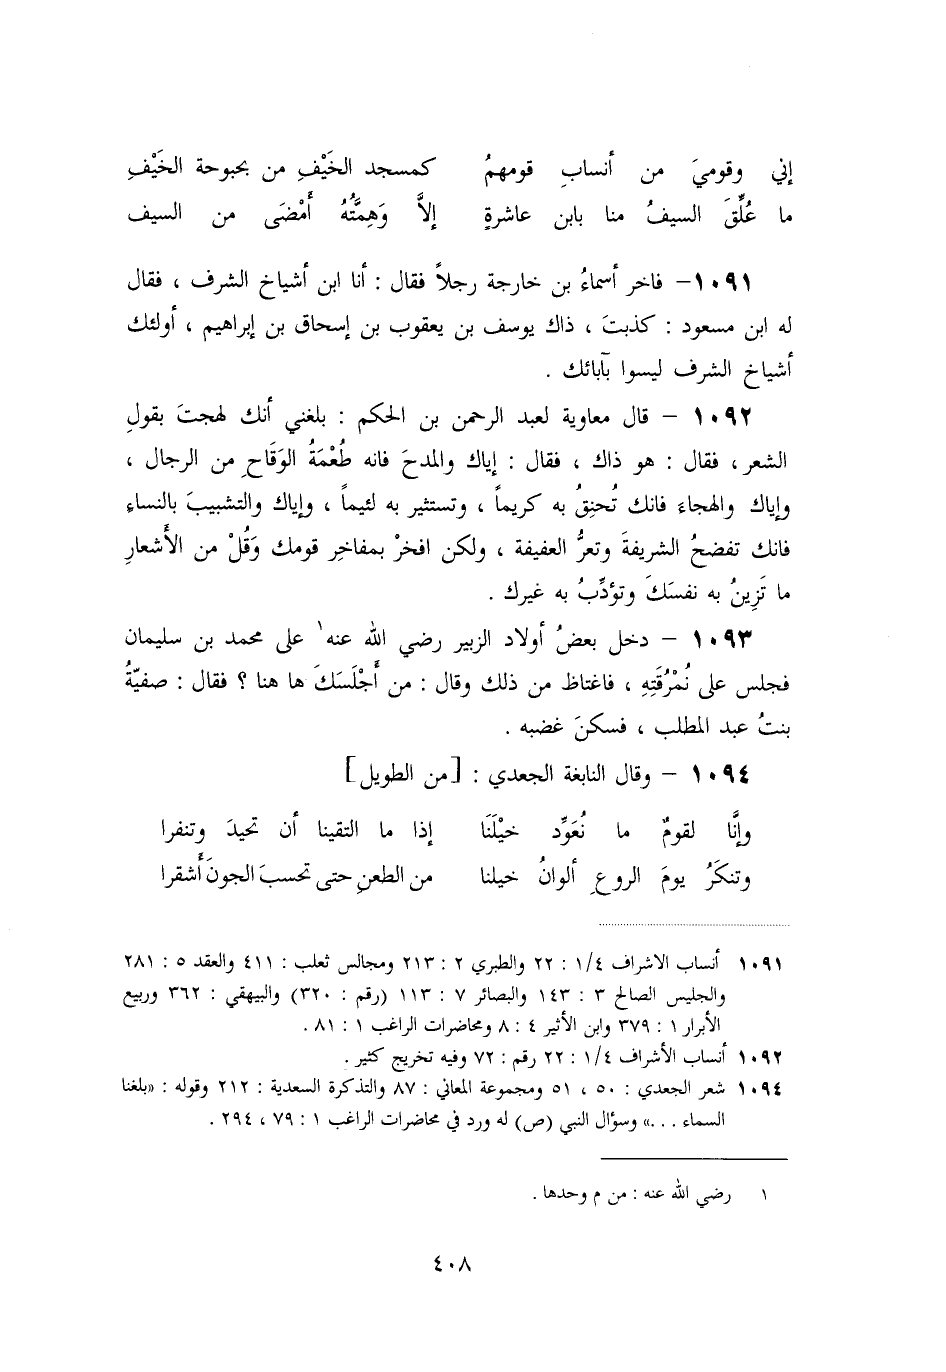 إني وقوميَ من أنسابِ قومهمُ كمسجد الخَيْفِ من بحبوحة الخَيْفِ
ما عُلِّقَ السيفُ منا بابن عاشرةٍ إلاَّ وَهِمَّتُهُ أَمْضَى من السيف
١٠٩١- فاخر أسماءُ بن خارجة رجلاً فقال : أنا ابن أشياخ الشرف ، فقال
له ابن مسعود : كذبتَ ، ذاك يوسف بن يعقوب بن إسحاق بن إبراهيم ، أولئك
أشياخ الشرف ليسوا بآبائك .
١٠٩٢ - قال معاوية لعبد الرحمن بن الحكم : بلغني أنك لهجتَ بقولِ
الشعر ، فقال : هو ذاك ، فقال : إياك والمدحَ فانه طُعْمَةُ الوَقَاحِ من الرجال ،
وإياك والهجاءَ فانك تُحنِقُ به كريماً ، وتستثير به لئيماً ، وإياك والتشبيبَ بالنساءِ
فانك تفضحُ الشريفةَ وتعرُّ العفيفة ، ولكن افخرْ بمفاخرِ قومك وَقُلْ من الأَشعارِ
ما تَزِينُ به نفسَكَ وتؤدِّبُ به غيرك .
١٠٩٣ - دخل بعضُ أولاد الزبير رضي الله عنه١ على محمد بن سليمان
فجلس على نُمْرُقَتِهِ ، فاغتاظ من ذلك وقال : من أَجْلَسَكَ ها هنا ؟ فقال : صفيّةُ
بنتُ عبد المطلب ، فسكنَ غضبه .
١٠٩٤ - وقال النابغة الجعدي : [من الطويل]
وإنَّا لقومٌ ما نُعَوِّد خيْلَنَا إذا ما التقينا أن تحيدَ وتنفرا
وتنكَرُ يومَ الروعِ ألوانُ خيلنا من الطعنِ حتى تحسبَ الجونَ أَشقرا
١٠٩١ أنساب الاشراف ١/٤ : ٢٢ والطبري ٢ : ٢١٣ ومجالس ثعلب : ٤١١ والعقد ٥ : ٢٨١
والجليس الصالح ٣ : ١٤٣ والبصائر ٧ : ١١٣ (رقم : ٣٢٠) والبيهقي : ٣٦٢ وربيع
الأبرار ١ : ٣٧٩ وابن الأثير ٤ : ٨ ومحاضرات الراغب ١ : ٨١ .
١٠٩٢ أنساب الأشراف ١/٤ : ٢٢ رقم : ٧٢ وفيه تخريج كثير .
١٠٩٤ شعر الجعدي : ٥٠ ، ٥١ ومجموعة المعاني : ٨٧ والتذكرة السعدية : ٢١٢ وقوله : «بلغنا
السماء . . .» وسؤال النبي (ص) له ورد في محاضرات الراغب ١ : ٧٩ ، ٢٩٤ .
١ رضي الله عنه : من م وحدها .
٤٠٨